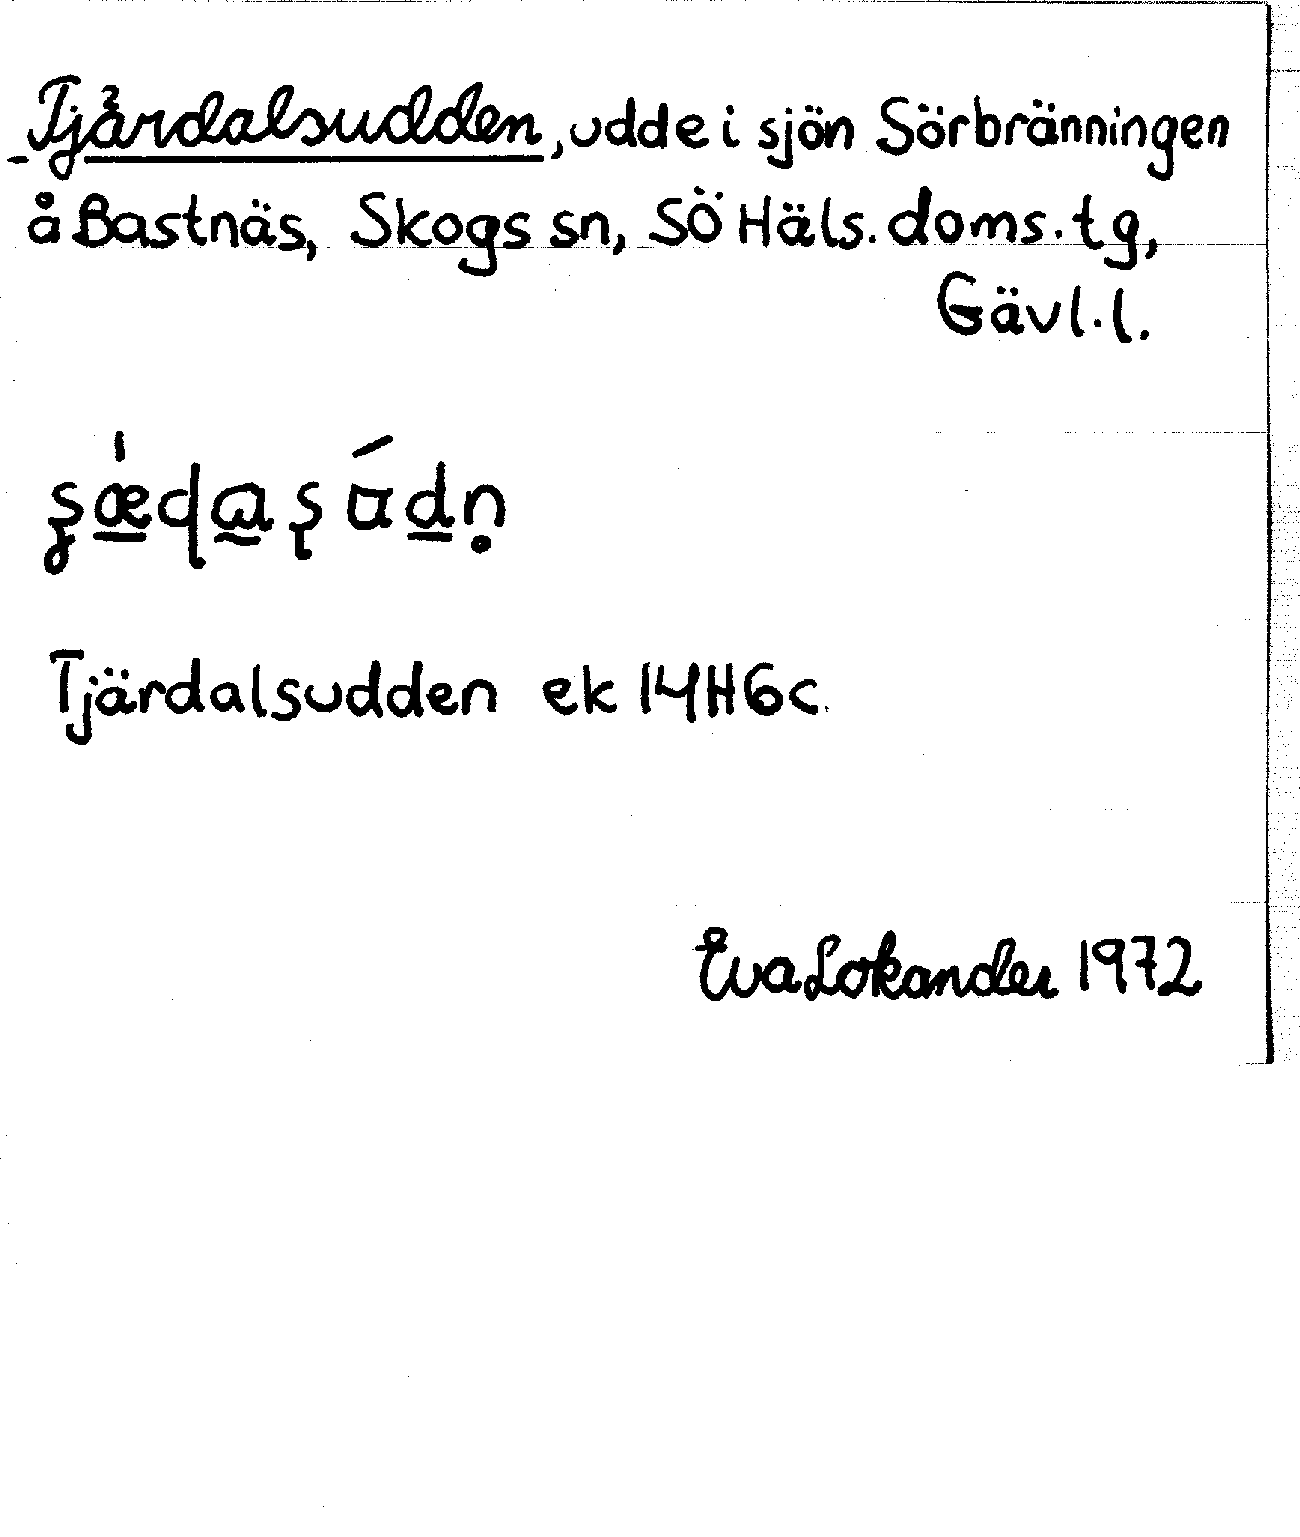 Tjärdalsudden, udde i sjön Sörbränningen
å Bastnäs, Skogs sn, SÖ Häls. doms. tg,
Gävl. l.
Tjärdalsudden ek 14H6c.
Eva Lokander 1972